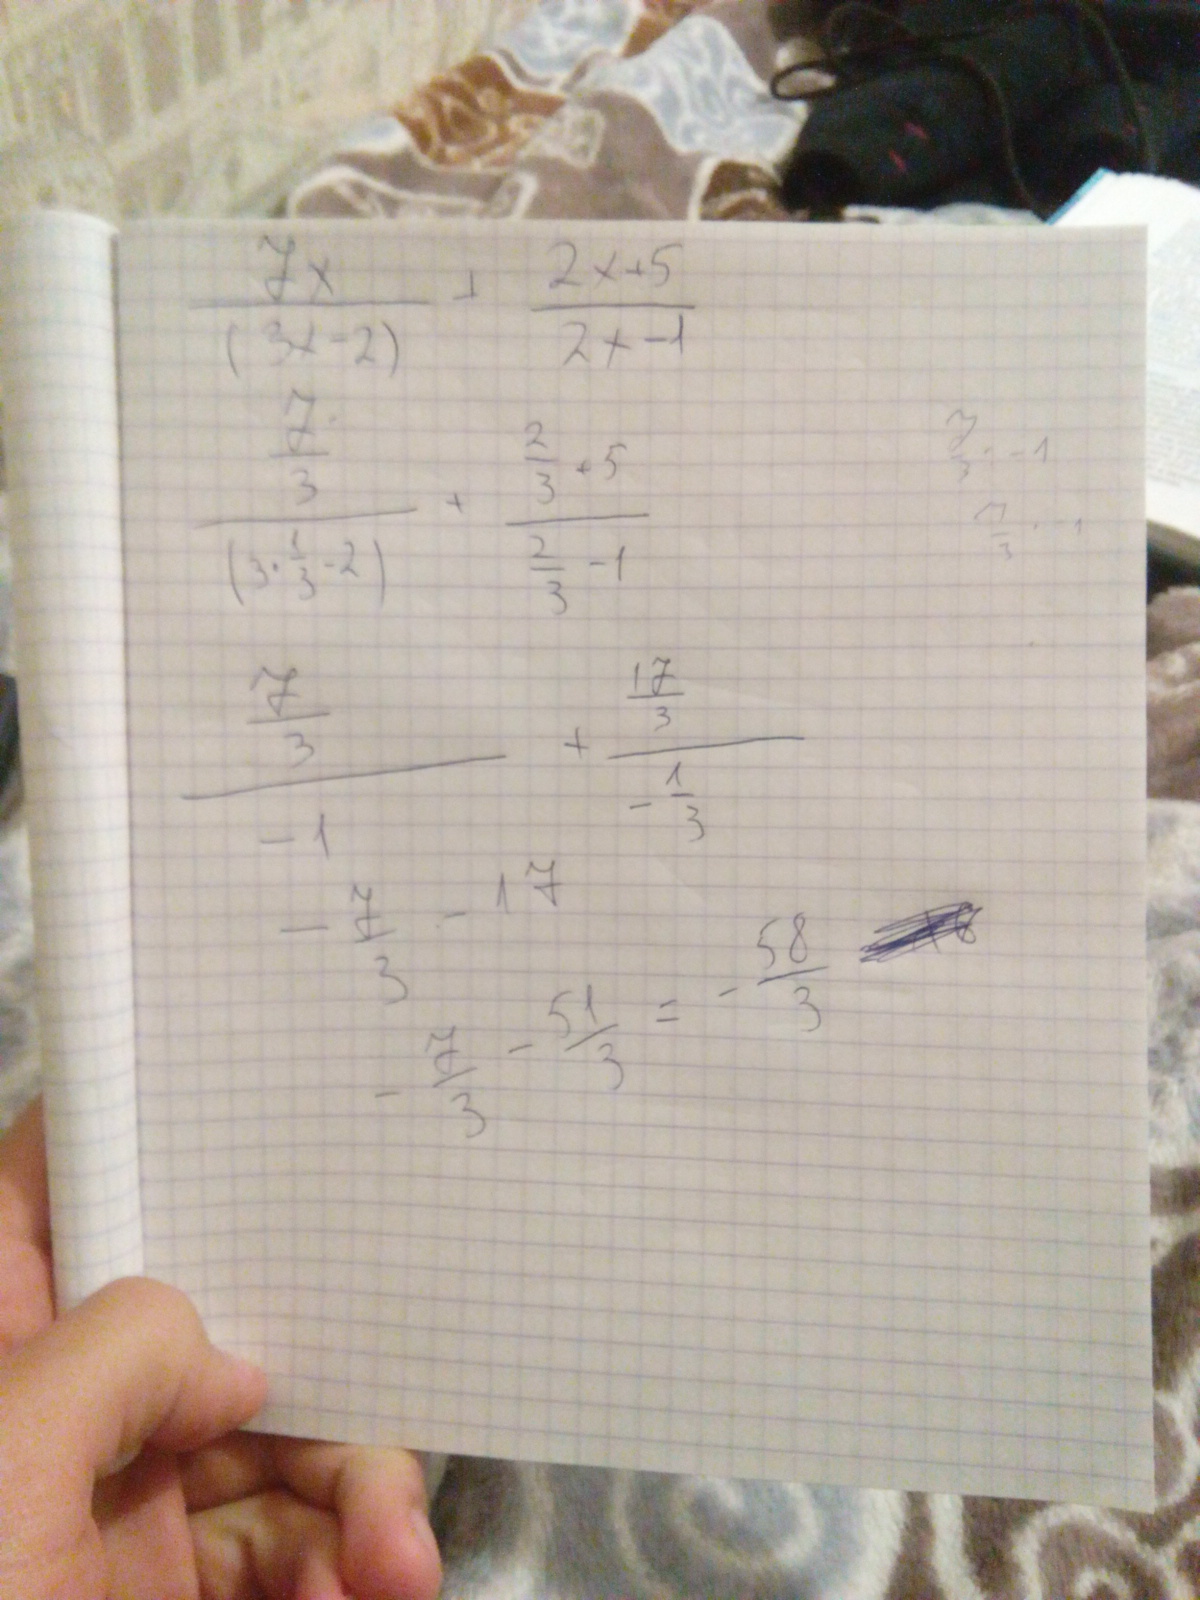 7x/(3x-2) + 2x+5/2x-1
7/3/(3·1/3-2) + 2/3+5/2/3-1
7/3 · -1
7/3 · -1
7/3/-1 + 17/3/-1/3
-7/3 - 17
-7/3 - 51/3 = -58/3